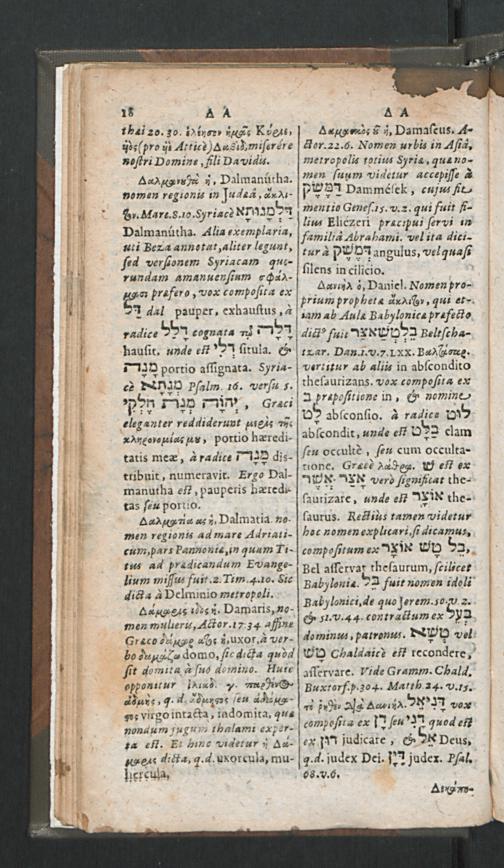 18 Δ Α
thæi 20. 30. ἐλέησον ἡμᾶς Κύριε,
(pro Atticè) Δαβίδ, miserére
nostri Domine, fili Davidis.
Δαλμανουθὰ ἡ, Dalmanútha.
nomen regionis in Judæâ, ἄκλι-
τον. Marc. 8.10. Syriacè דַּלְמָנוּתָא
Dalmanútha. Alia exemplaria,
uti Beza annotat, aliter legunt,
sed versionem Syriacam quo-
rundam amanuensium σφάλ-
μασι præfero, vox composita ex
דַּל dal pauper, exhaustus, à
radice דָּלַל cognata τῷ דָּלָה
hausit. unde est דְּלִי situla. &
מָנָה portio assignata. Syria-
cè מְנָתָא Psalm. 16. versu 5.
יְהוָֹה מְנָת חֶלְקִי, Græci
eleganter reddiderunt μερὶς τῆς
κληρονομίας μου, portio hæredi-
tatis meæ, à radice מָנָה dis-
tribuit, numeravit. Ergo Dal-
manutha est, pauperis hæredi-
tas seu portio.
Δαλματία ας ἡ, Dalmatia. no-
men regionis ad mare Adriati-
cum, pars Pannoniæ, in quam Ti-
tus ad prædicandum Evange-
lium missus fuit. 2. Tim. 4.10. Sic
dicta à Delminio metropoli.
Δάμαρις ιδος ἡ. Damaris, no-
men mulieris, Actor. 17.34 affine
Græco δάμαρ αρτος ἡ, uxor, à ver-
bo δαμάζω domo, sic dicta quòd
sit domita à suo domino. Huic
opponitur ἰλιαδ. γ. παρθένος
ἀδμὴς, q. d. ἀδμητος seu ἀδάμα-
στος virgo intacta, indomita, quæ
nondum jugum thalami exper-
ta est. Et hinc videtur ἡ Δά-
μαρις dicta, q.d. uxorcula, mu-
liercula,
Δ Α
Δαμασκὸς οῦ ἡ, Damascus. A-
ctor. 22.6. Nomen urbis in Asiâ,
metropolis totius Syriæ, quæ no-
men suum videtur accepisse à
דַּמֶּשֶׂק Dammések, cujus fit
mentio Genes. 15. v. 2. qui fuit fi-
lius Eliézeri præcipui servi in
familiâ Abrahami. vel ita dici-
tur à דְּמֶשֶׁק angulus, vel quasi
silens in cilicio.
Δανιὴλ ὁ, Daniel. Nomen pro-
prium prophetæ ἄκλιτον, qui et-
iam ab Aulæ Babylonicæ præfecto
dict⁹ fuit בֵּלְטְשַׁאצַּר Beltscha-
tzar. Dan. 1. v. 7. LXX. Βαλτάσαρ.
vertitur ab aliis in abscondito
thesaurizans. vox composita ex
ב præpositione in, & nomine
לָט absconsio. à radice לוּט
abscondit, unde est בַּלָּט clam
seu occultè, seu cum occulta-
tione. Græcè λάθρα. שׁ est ex
אֲשֶׁר אָצַר verò significat the-
saurizare, unde est אוֹצָר the-
saurus. Rectiùs tamen videtur
hoc nomen explicari, si dicamus,
compositum ex בֵּל טָשׁ אוֹצָר,
Bel asservat thesaurum, scilicet
Babyloniæ. בֵּל fuit nomen idoli
Babylonici, de quo Jerem. 50. v. 2.
& 51. v. 44. contractum ex בַּעַל
dominus, patronus. טְשָׁא vel
טָשׁ Chaldaicè est recondere,
asservare. Vide Gramm. Chald.
Buxtorf. p. 304. Matth 24. v. 15.
τὸ ῥηθὲν διὰ Δανιήλ. דָּנִיֵּאל vox
composita ex דָּן seu דָּנִי quod est
ex דּוּן judicare, & אֵל Deus,
q.d. judex Dei. דַּיָּן judex. Psal.
68. v. 6.
Δεκάπο-